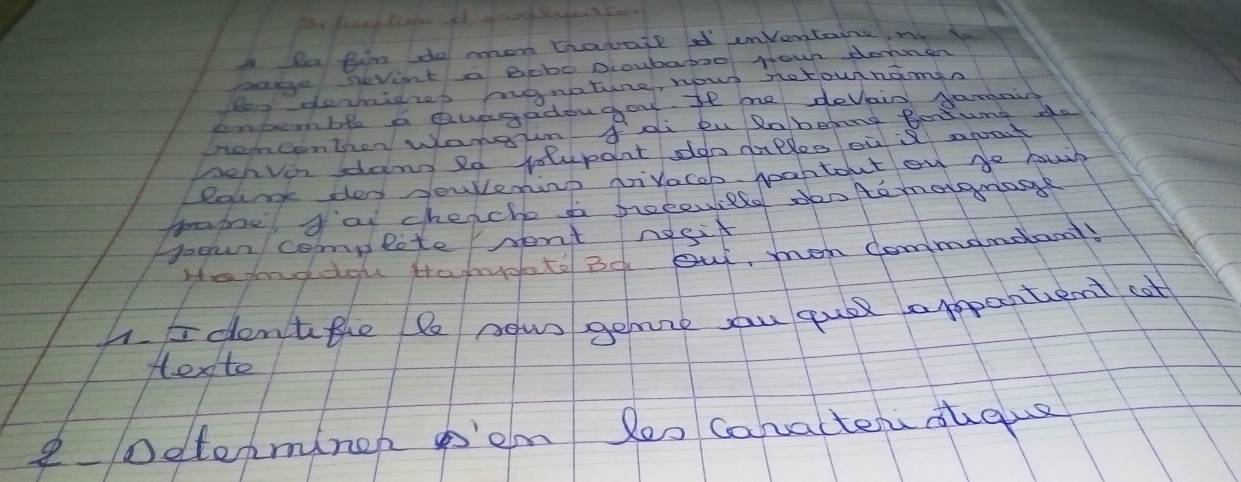 A la fin de mon travail d'inventaire, nr de
page revint à Bobo Dioulabao pour donner
les dernières signature, nous retournâmes
ensemble à Ouagadougou. Je ne devais jamais
rencontrer Wangrin j'ai eu labonne fortune de
servir dans la plupart des villes où il avait
laissé des souvenins vivaces. partout ou je suis
passé, j'ai cherché à recueillir des témoignage
pour compléte sont résit
Hamadou Hampaté Ba Oui, mon commandant!
1- Identifie le sous genre au quel appartient cet
texte
2- Determiner s'en les caracteristique